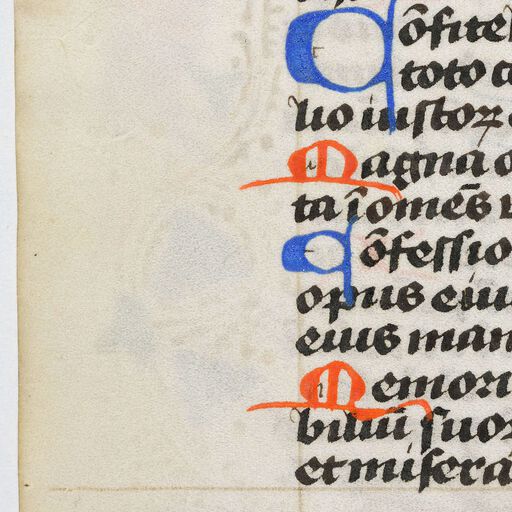 Cōfite
toto c
lio iustoꝝ
Magna o
ta ī om̄es v
Cōfessio
opus eiu
eius man
Memori
biliū suoꝝ
et misera